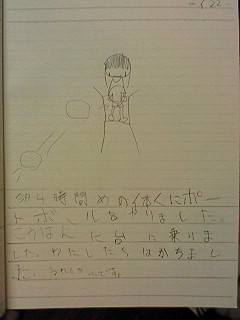 4時間めの体くにポー
トボールをやりました。
ころはんに台に乗りま
した。わたしたちはかちまし
た。うれしかったです。